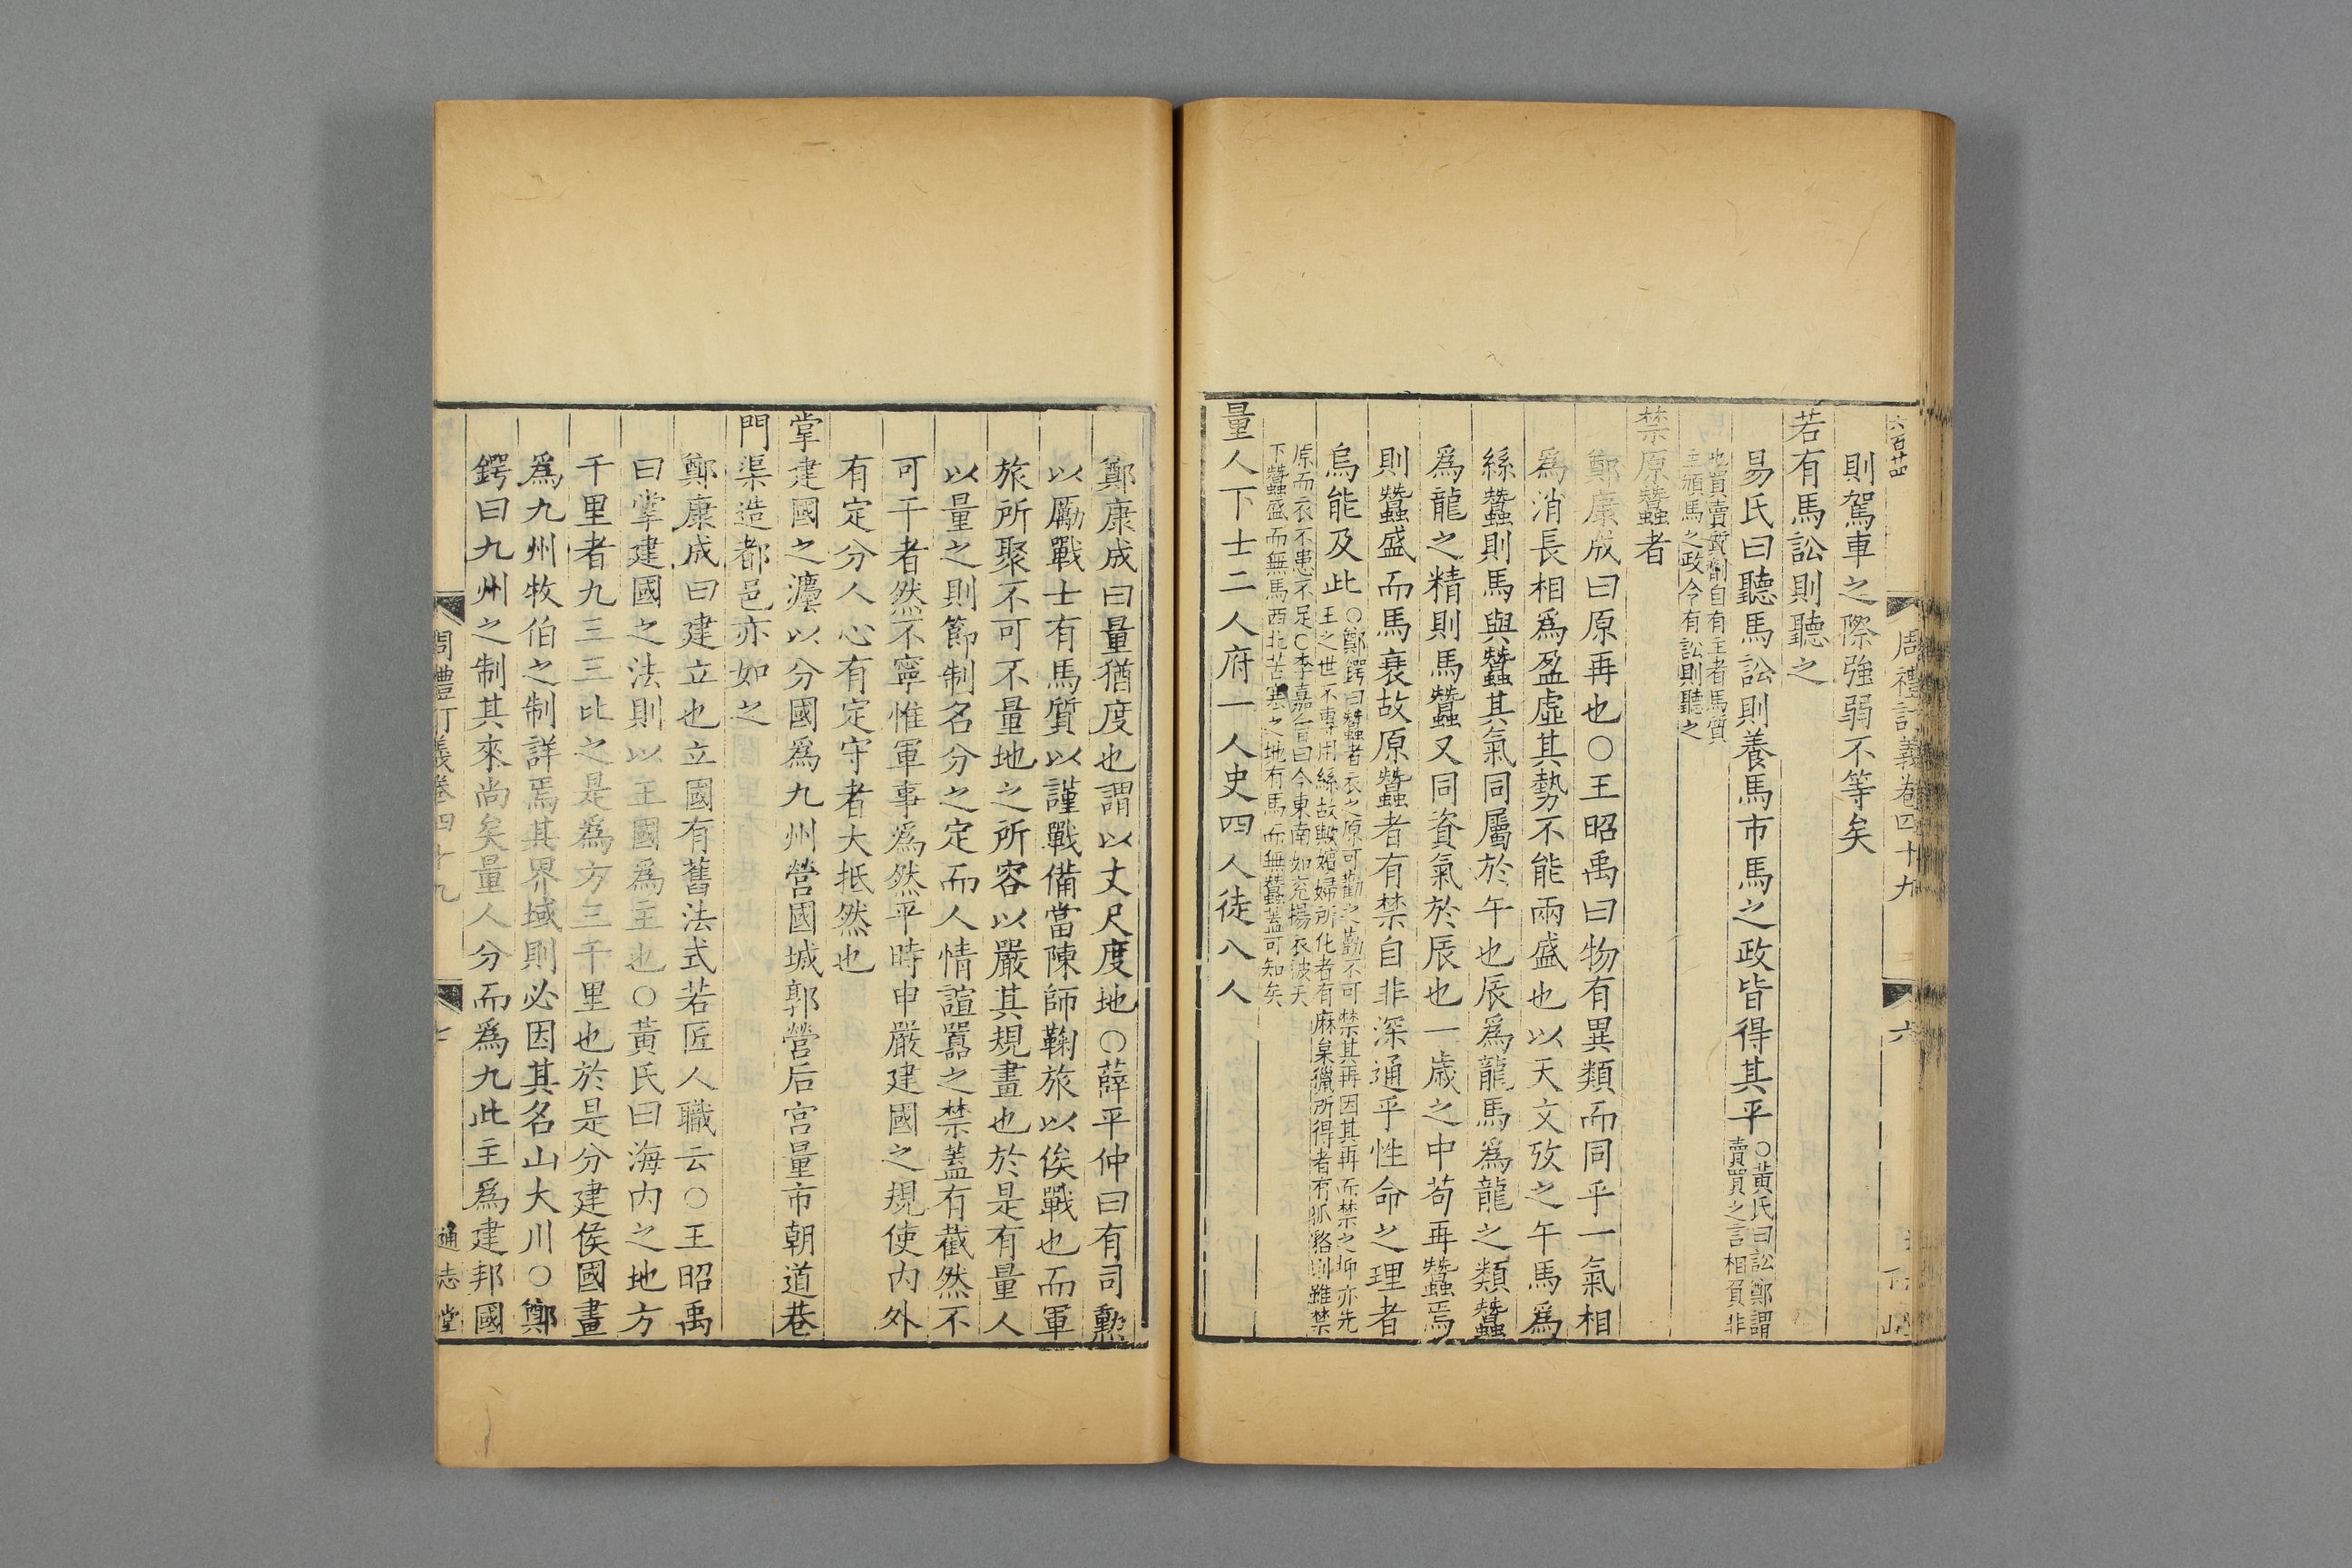 六百廿四
周禮訂義卷四十九
六
則駕車之際強弱不等矣
若有馬訟則聽之
易氏曰聽馬訟則養馬市馬之政皆得其平
○黃氏曰訟鄭謂
賣買之言相負非
也買賣質劑自有主者馬質
主頒馬之政令有訟則聽之
禁原蠶者
鄭康成曰原再也○王昭禹曰物有異類而同乎一氣相
爲消長相爲盈虛其勢不能兩盛也以天文攷之午馬爲
絲蠶則馬與蠶其氣同屬於午也辰爲龍馬爲龍之類蠶
爲龍之精則馬蠶又同資氣於辰也一歲之中苟再蠶焉
則蠶盛而馬衰故原蠶者有禁自非深通乎性命之理者
烏能及此
○鄭鍔曰蠶者衣之原可勸之勸不可禁其再因其再而禁之抑亦先
王之世不專用絲故嬪婦所化者有麻枲獵所得者有狐貉則雖禁
原而衣不患不足○李嘉會曰今東南如兗揚衣被天
下蠶盛而無馬西北苦寒之地有馬而無蠶蓋可知矣
量人下士二人府一人史四人徒八人
鄭康成曰量猶度也謂以丈尺度地○薛平仲曰有司勲
以勵戰士有馬質以謹戰備當陳師鞠旅以俟戰也而軍
旅所聚不可不量地之所容以嚴其規畫也於是有量人
以量之則節制名分之定而人情諠囂之禁蓋有截然不
可干者然不寧惟軍事爲然平時申嚴建國之規使內外
有定分人心有定守者大抵然也
掌建國之灋以分國爲九州營國城郭營后宮量市朝道巷
門渠造都邑亦如之
鄭康成曰建立也立國有舊法式若匠人職云○王昭禹
曰掌建國之法則以王國爲主也○黃氏曰海內之地方
千里者九三三比之是爲方三千里也於是分建侯國畫
爲九州牧伯之制詳焉其界域則必因其名山大川○鄭
鍔曰九州之制其來尚矣量人分而爲九此主爲建邦國
周禮訂義卷四十九
七
通志堂